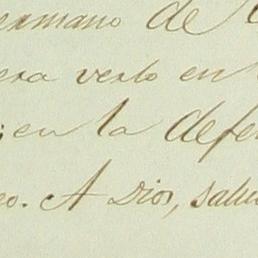 ermano de
era verlo en
; en la defen
eo. A Dios, salud